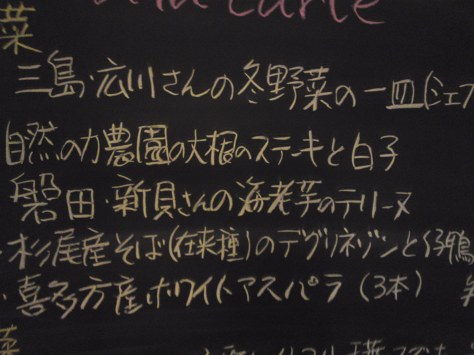 a la carte
菜
三島・広川さんの冬野菜の一皿(シェフ
自然の力農園の大根のステーキと白子
磐田・新貝さんの海老芋のテリーヌ
・杉尾産そば(在来種)のデグリネゾンと仔鴨
・喜多方産ホワイトアスパラ(3本)
菜